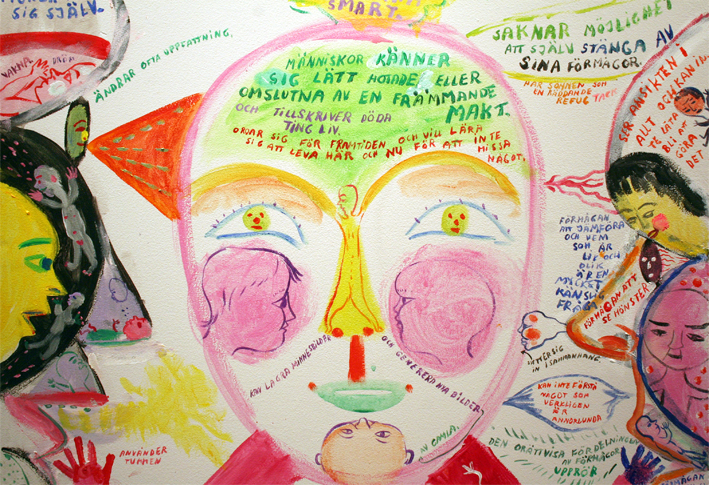 SIG SJÄLV.
SMART.
ÄNDRAR OFTA UPPFATTNING.
MÄNNISKOR KÄNNER
SIG LÄTT HOTADE ELLER
OMSLUTNA AV EN FRÄMMANDE
MAKT.
OCH TILLSKRIVER DÖDA
TING LIV.
OROAR SIG FÖR FRAMTIDEN OCH VILL LÄRA
SIG ATT LEVA HÄR OCH NU FÖR ATT INTE
MISSA
NÅGOT.
SAKNAR MÖJLIGHET
ATT SJÄLV STÄNGA AV
SINA FÖRMÅGOR.
HAR SÖMNEN SOM
EN
REFUG
SER ANSIKTEN I
ALLT OCH KAN
BLI AV
GÖRA
DET
FÖRMÅGAN
ATT JÄMFÖRA
OCH VEM
SOM ÄR
LIK OCH
OLIK
ÄR EN
MYCKET
KÄNSLIG
FRÅGA.
FÖRMÅGAN ATT
SE MÖNSTER
SIG
I SAMMANHANG
KAN LAGRA MINNESBILDER
OCH GENERERA NYA BILDER
AV OMVÄ.
KAN INTE FÖRSTÅ
NÅGOT SOM
VERKLIGEN
ÄR
ANNORLUNDA
DEN ORÄTTVISA FÖRDELNINGEN
AV FÖRMÅGOR
UPPRÖR
ANVÄNDER
TUMMEN